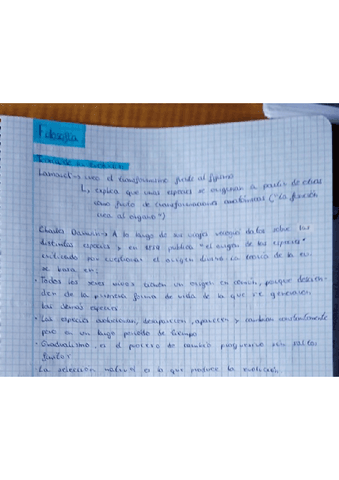 Filosofía
Teorías de la evolución
Lamarck → crea el transformismo frente al fijismo
↳ explica que unas especies se originan a partir de otras
como fruto de transformaciones anatómicas ("la función
crea al órgano")
Charles Darwin → A lo largo de sus viajes recogió datos sobre las
distintas especies y en 1859 publica "el origen de las especies"
criticado por cuestionar el origen divino. La teoría de la ev.
se basa en:
· Todos los seres vivos tienen un origen en común, porque descien-
den de la primera forma de vida de la que se generaron
las demás especies
· Las especies evolucionan, desaparecen, aparecen y cambian constantemente
pero en un largo periodo de tiempo
· Gradualismo, es el proceso de cambio progresivo sin saltos
bruscos
· La selección natural es lo que produce la evolución